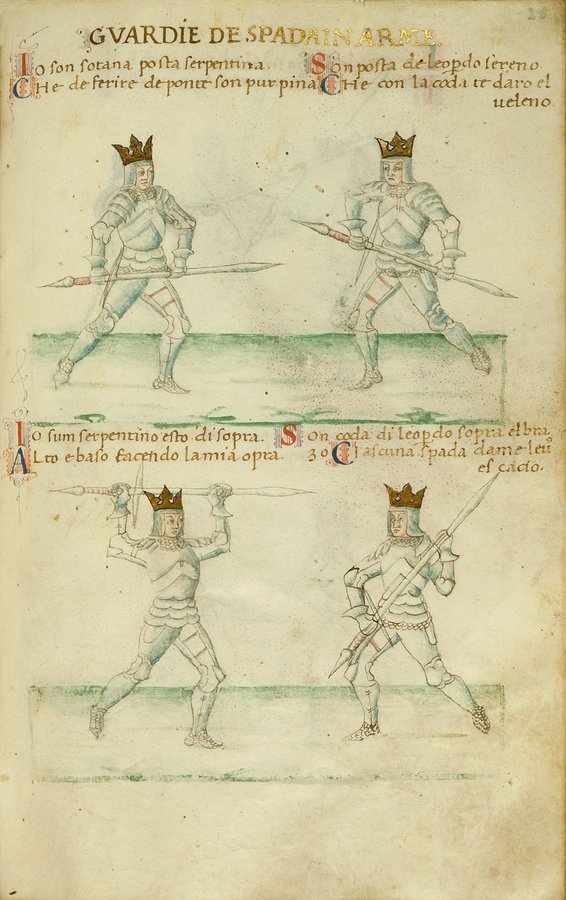 GVARDIE DE SPADA IN ARME
Io son sotana posta serpentina.
Che de ferire de ponte son pur pina
Son posta de leopdo sereno.
Che con la coda te daro el
veleno.
Io sum serpentino e sto di sopra.
Alto e baso facendo la mia opra.
Son coda di leopdo sopra el bra
30 Ciascuna spada da me
cacio.